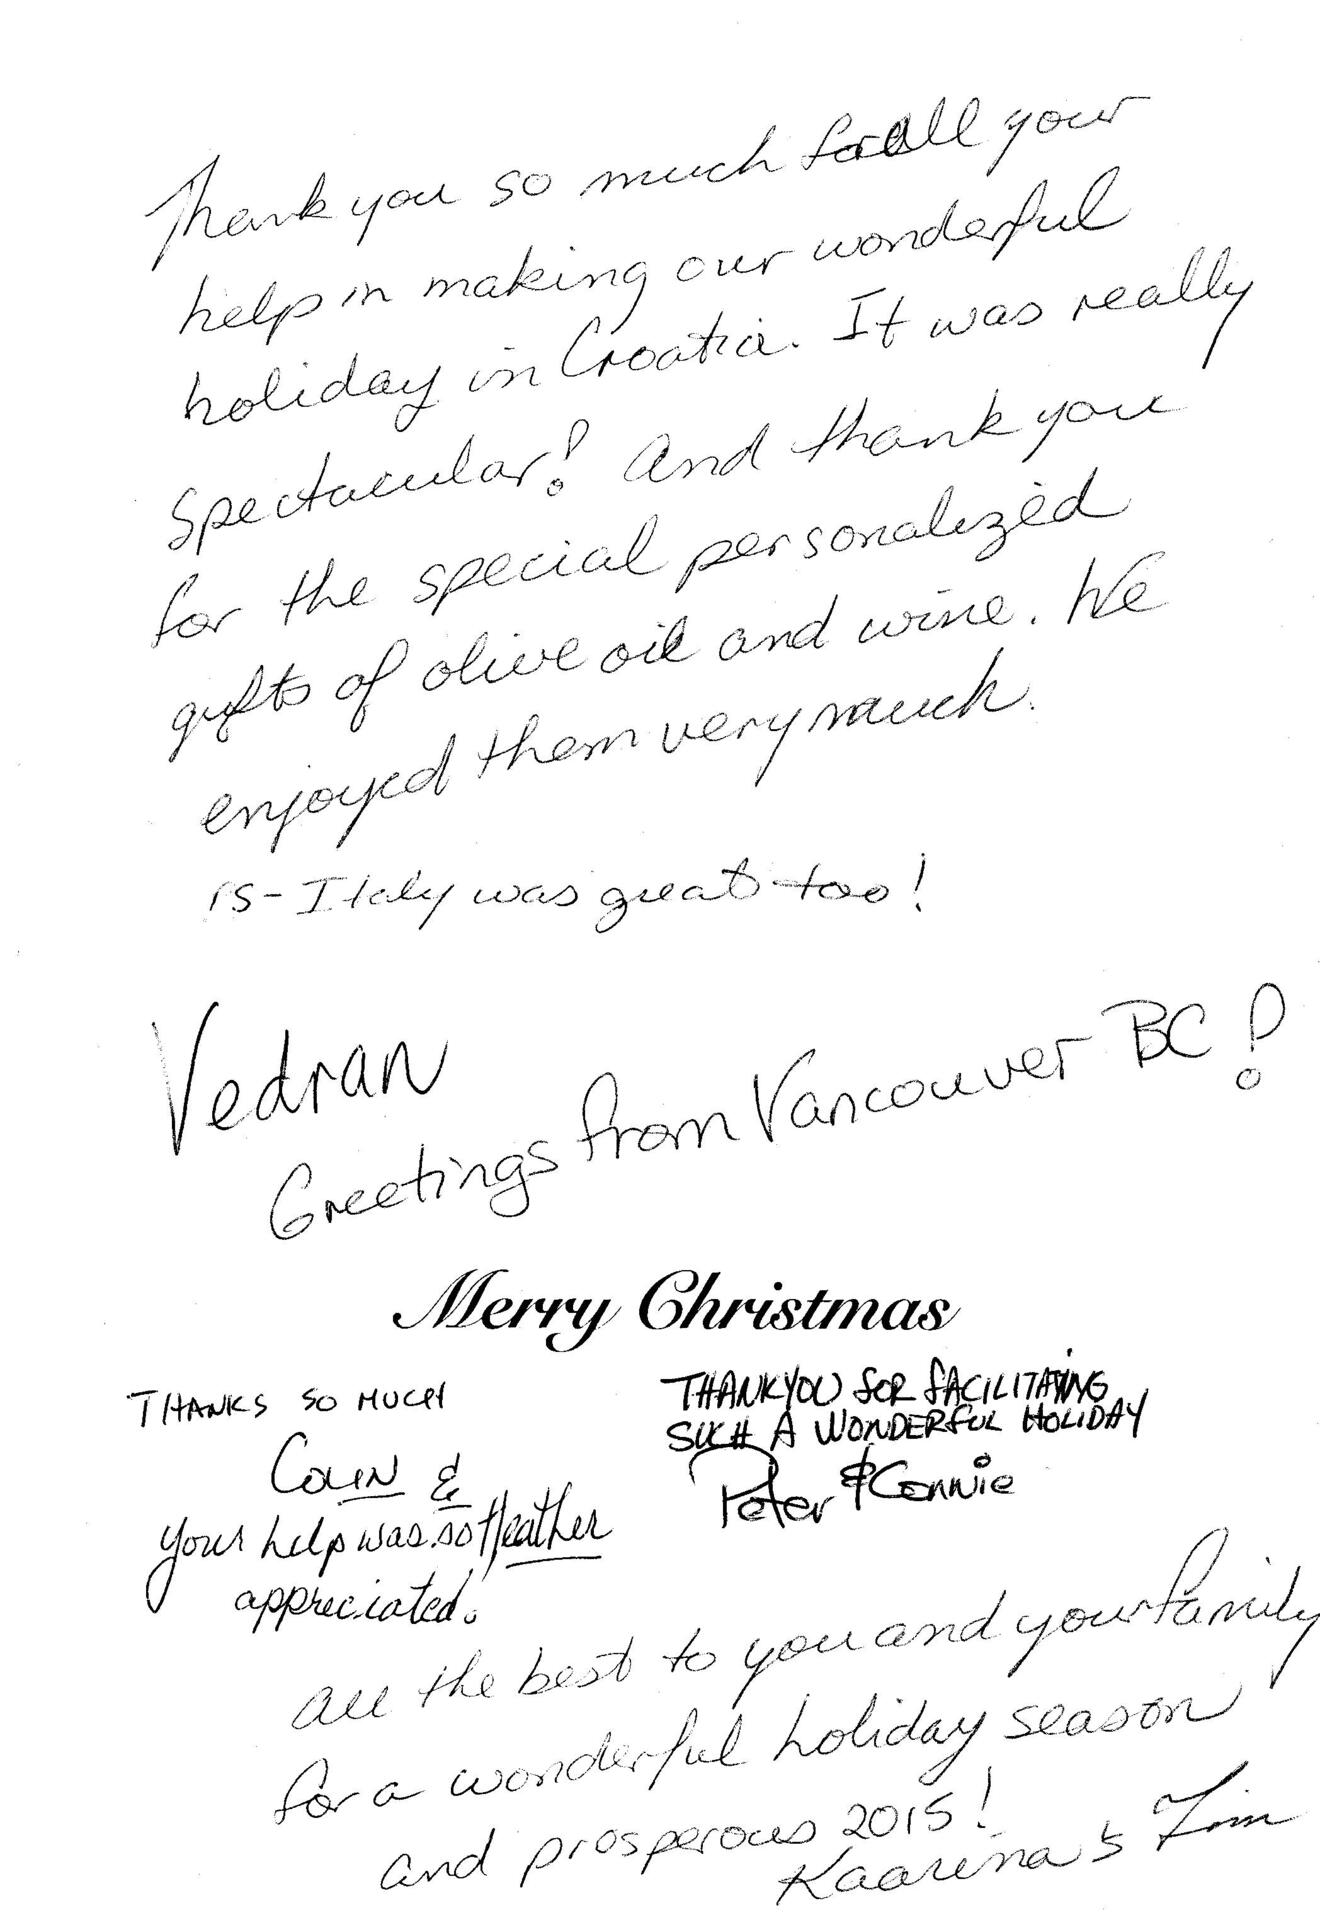 Thank you so much for all your
help in making our wonderful
holiday in Croatia. It was really
spectacular! And thank you
for the special personalized
gifts of olive oil and wine. We
enjoyed them very much.
PS - Italy was great too!
Vedran
Greetings from Vancouver BC!
Merry Christmas
THANKS SO MUCH
COLIN &
Heather
Your help was so
appreciated.
THANKYOU FOR FACILITATING
SUCH A WONDERFUL HOLIDAY
Peter & Connie
All the best to you and your family
for a wonderful holiday season
and prosperous 2015!
Kaarina & Jim